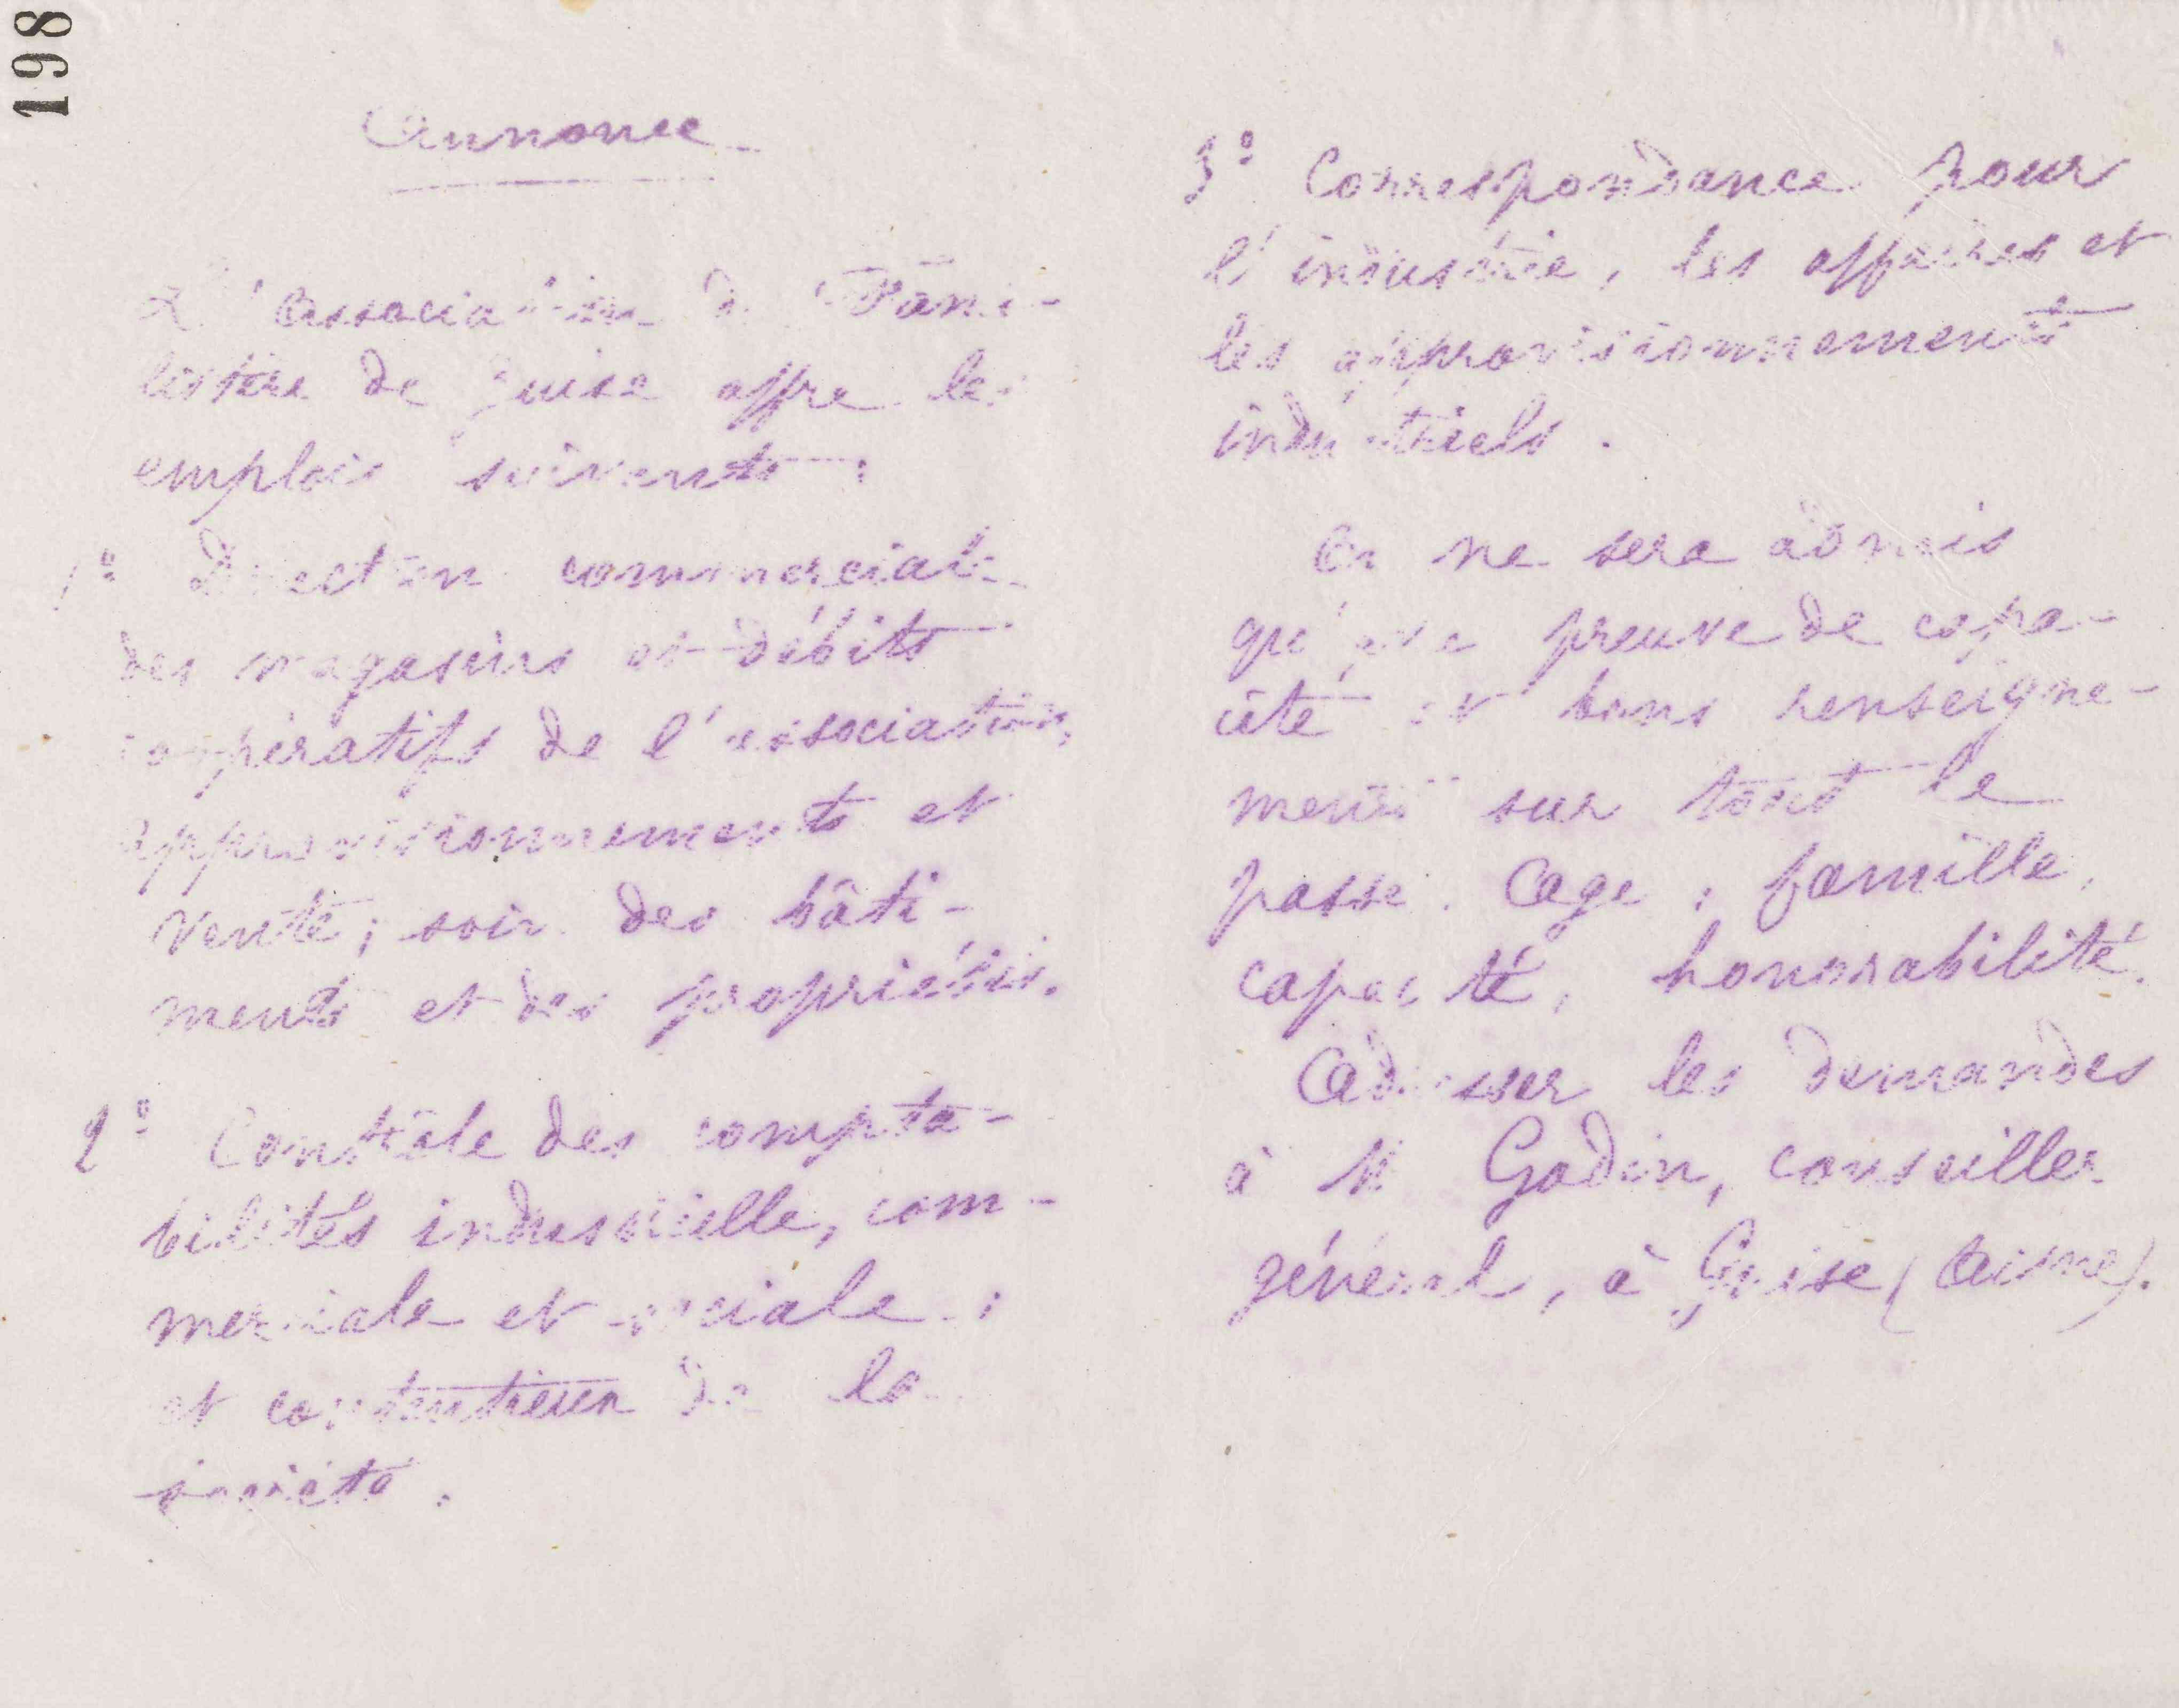 198
Annonce
L'Association du Fami-
listère de Guise offre les
emplois suivants :
1º Direction commerciale
des magasins et débits
coopératifs de l'association,
approvisionnements et
vente ; soin des bâti-
ments et des propriétés.
2º Contrôle des compta-
bilités industrielle, com-
merciale et sociale ;
et contentieux de la
société.
3º Correspondance pour
l'industrie, les affaires et
les approvisionnements
industriels.
On ne sera admis
qu'avec preuve de capa-
cité et bons renseigne-
ments sur tout le
passé. Age, famille,
capacité, honorabilité.
Adresser les demandes
à M Godin, conseiller
général, à Guise (Aisne).